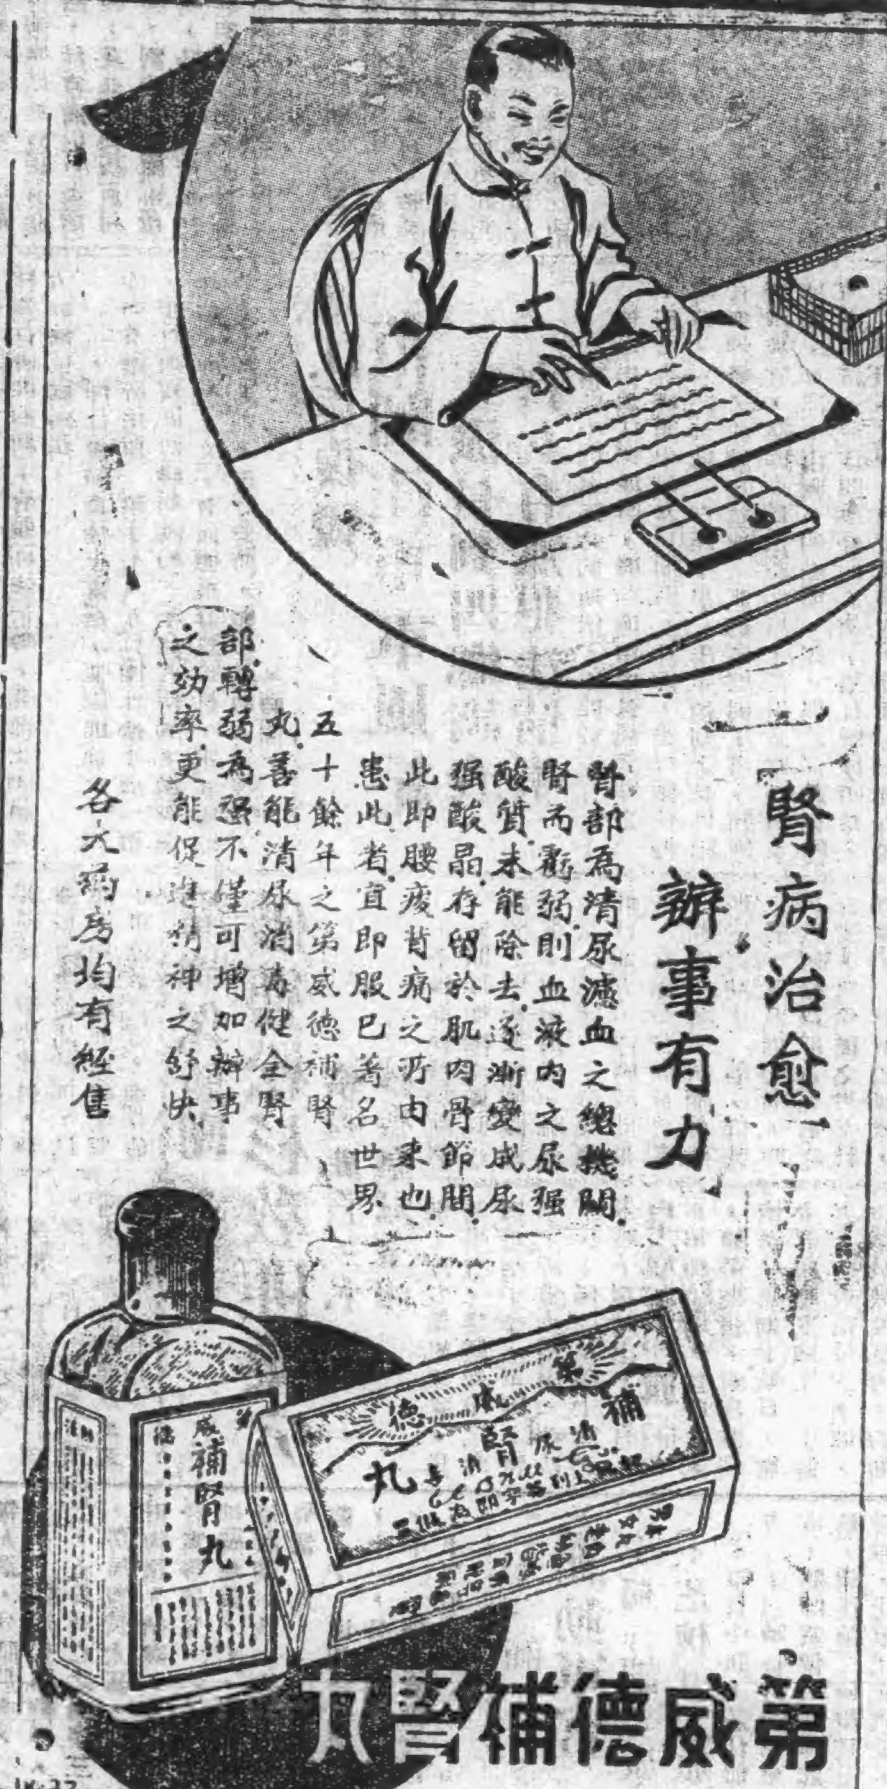 腎病治愈
辦事有力
腎部為清尿濾血之總機關
腎而虧弱則血液内之尿强
酸質未能除去逐漸變成尿
强酸晶存留於肌肉骨節間
此即腰痠背痛之所由來也
患此者宜即服已著名世界
五十餘年之第威德補腎
丸善能清尿消毒健全腎
部轉弱為强不僅可增加辦事
之効率更能促進精神之舒快
各大葯房均有經售
第威德
補腎丸
清尿
消毒
補腎丸
第威德補腎丸